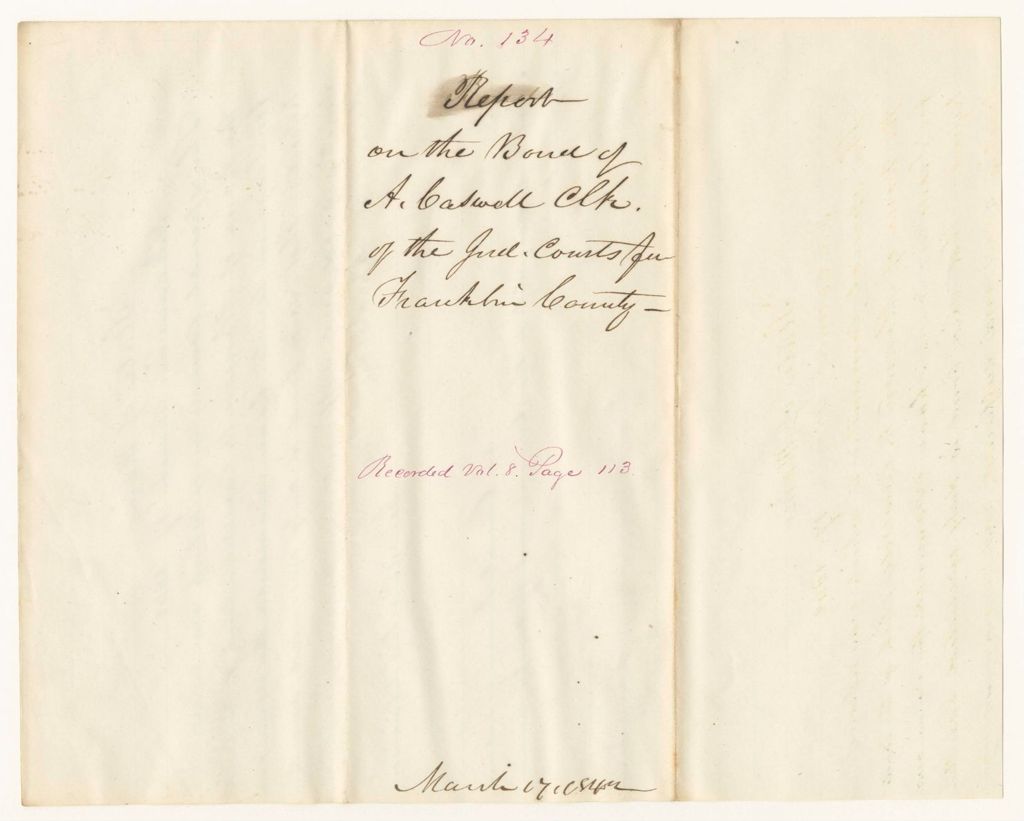 No. 134
Report
on the Bond of
A. Caswell Clk.
of the Jud. Courts for
Franklin County —
Recorded Vol. 8. Page 113
March 17, 1842